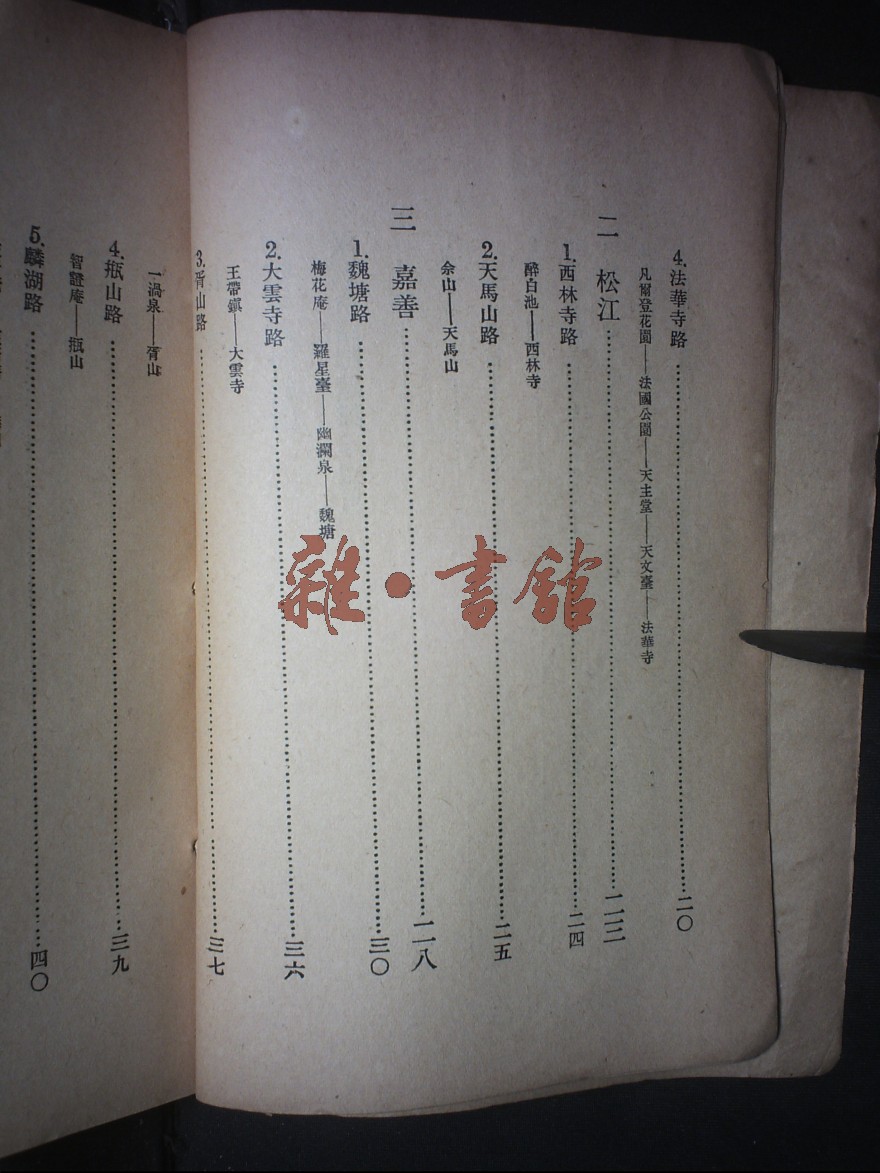 4.法華寺路……二〇
凡爾登花園——法國公園——天主堂——天文臺——法華寺
二 松江……二三
1.西林寺路……二四
醉白池——西林寺
2.天馬山路……二五
佘山——天馬山
三 嘉善……二八
1.魏塘路……三〇
梅花庵——羅星臺——幽瀾泉——魏塘
2.大雲寺路……三六
王帶鎮——大雲寺
3.胥山路……三七
一渦泉——胥山
4.瓶山路……三九
智證庵——瓶山
5.麟湖路……四〇
雜·書館